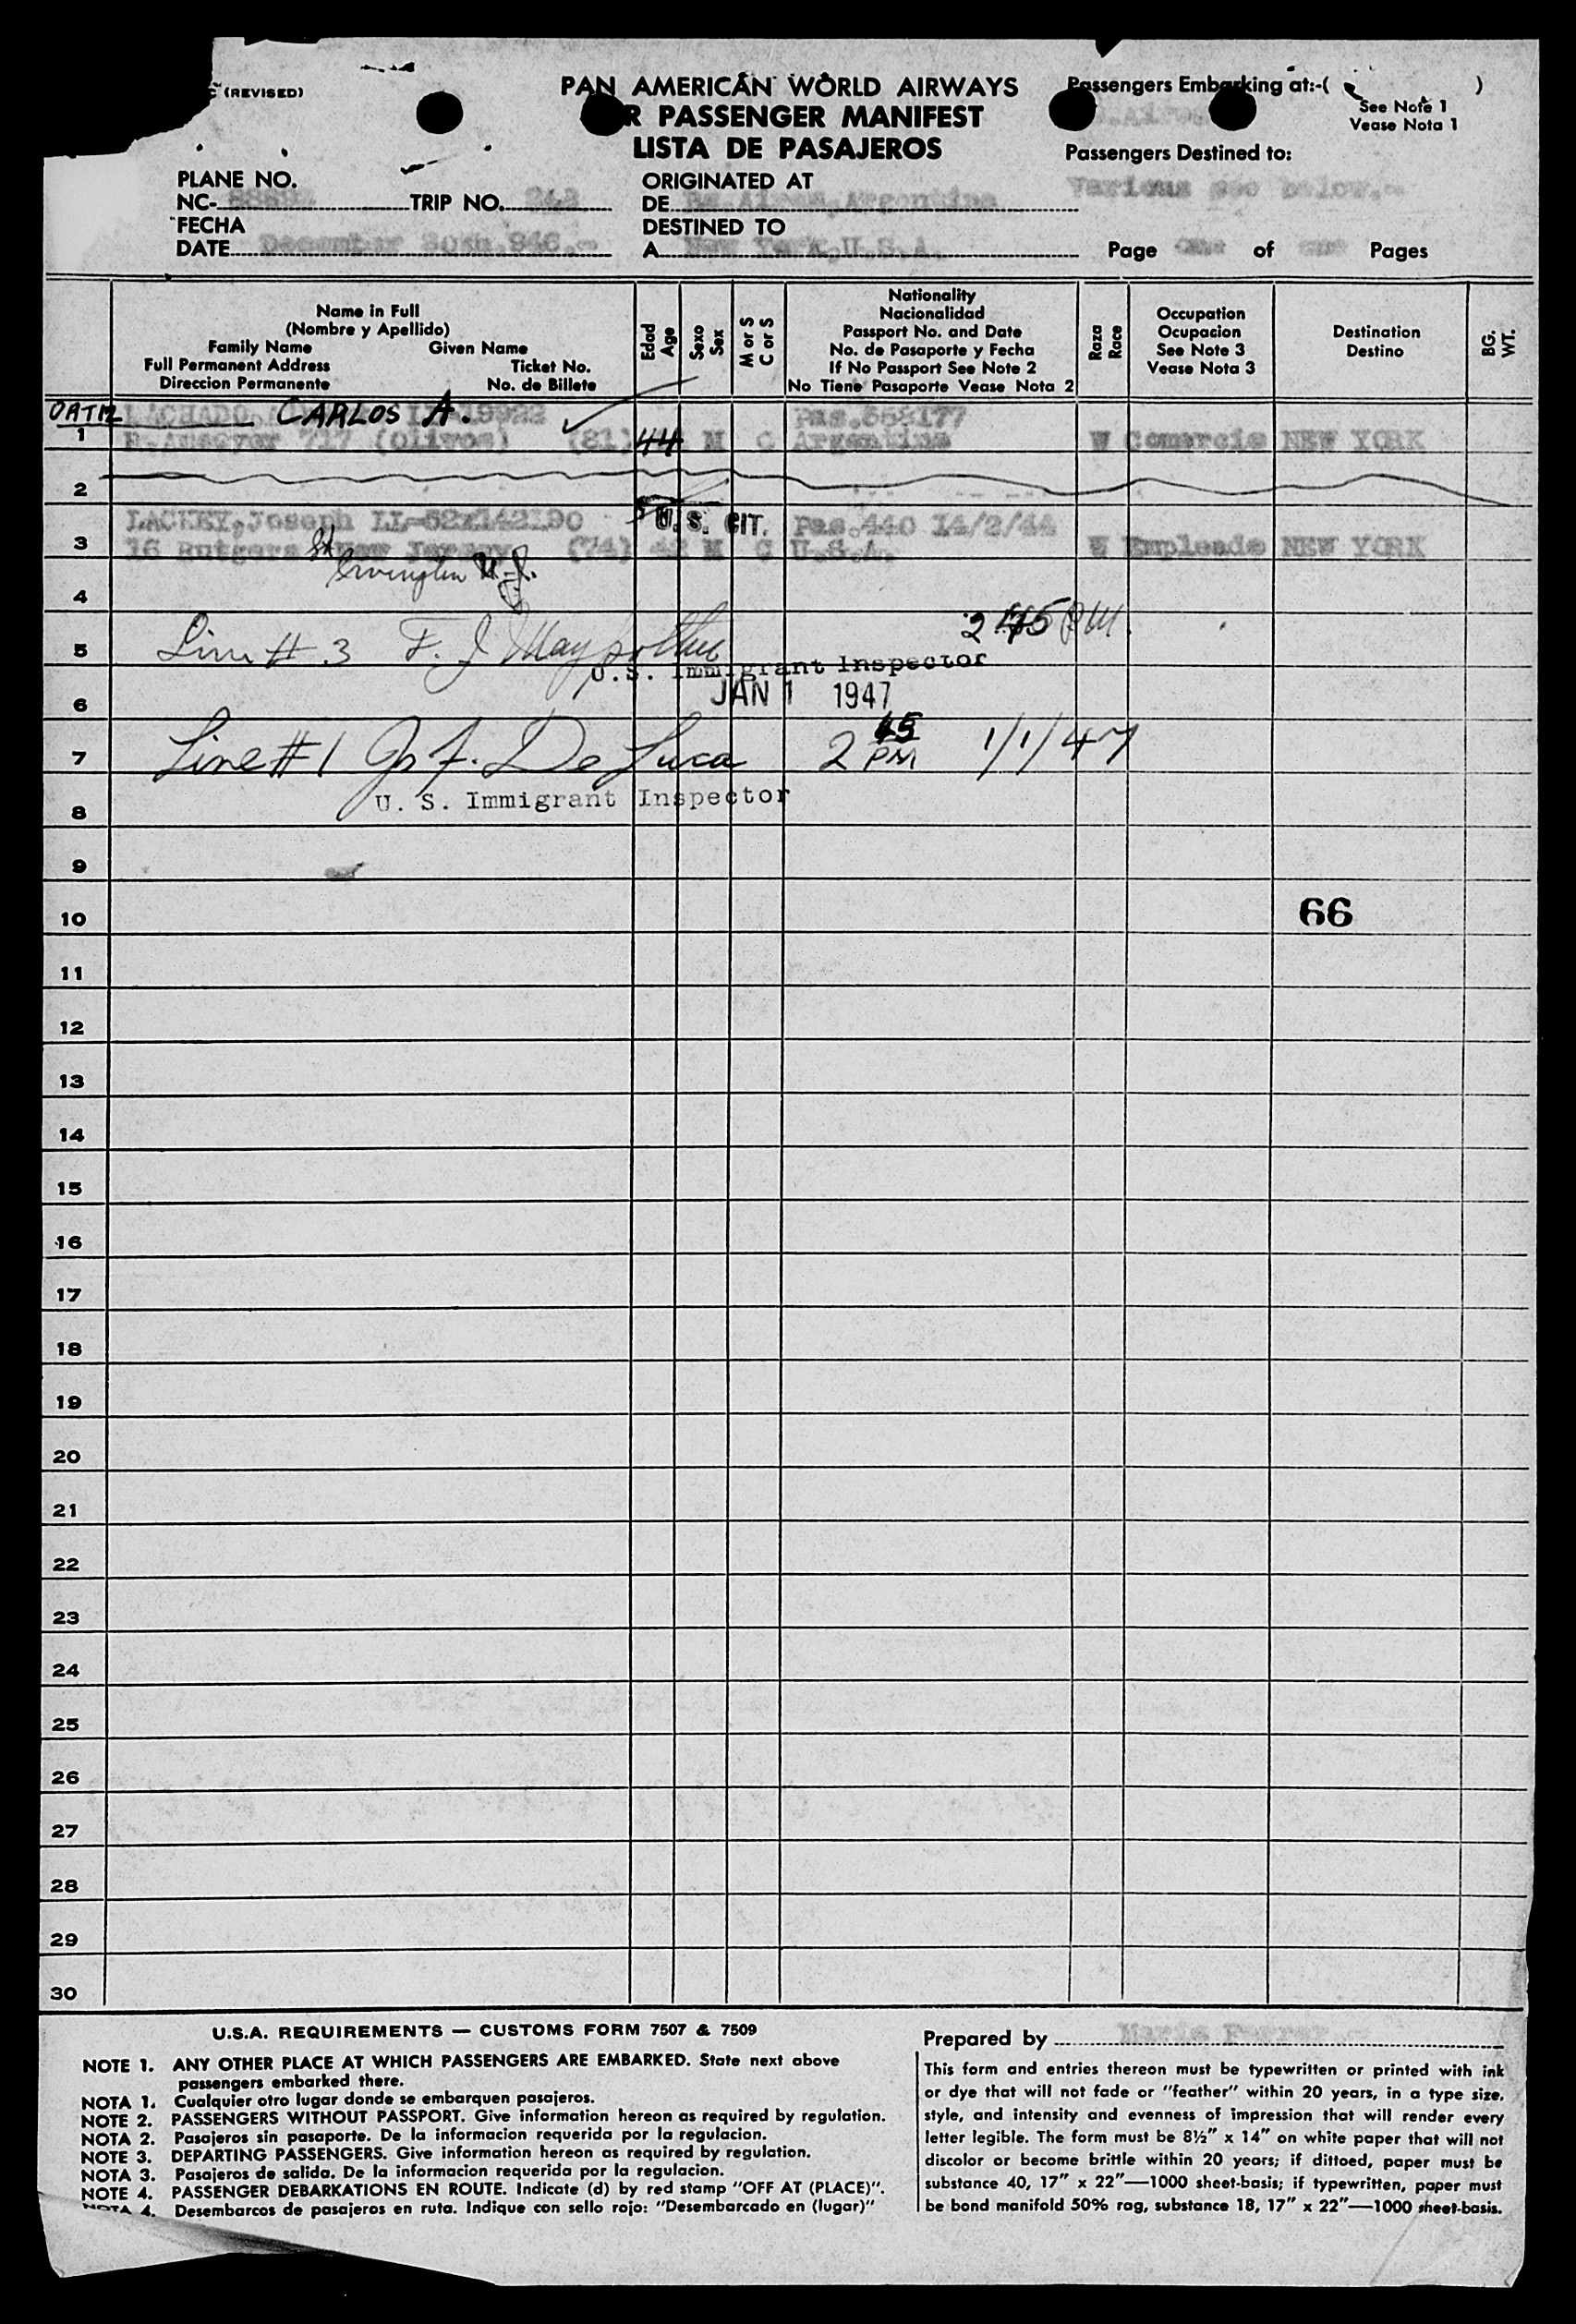 (REVISED)
PAN AMERICAN WORLD AIRWAYS
R PASSENGER MANIFEST
LISTA DE PASAJEROS
Passengers Embarking at:-( )
See Note 1
Vease Nota 1
Passengers Destined to:
Various see below.-
PLANE NO.
NC- TRIP NO. 243
FECHA
DATE December 30th.946.-
ORIGINATED AT
DE Bs.Aires,Argentina
DESTINED TO
A New York,U.S.A.
Page one of one Pages
Name in Full
(Nombre y Apellido)
Family Name Given Name
Full Permanent Address Ticket No.
Direccion Permanente No. de Billete
Edad
Age
Sexo
Sex
M or S
C or S
Nationality
Nacionalidad
Passport No. and Date
No. de Pasaporte y Fecha
If No Passport See Note 2
No Tiene Pasaporte Vease Nota 2
Raza
Race
Occupation
Ocupacion
See Note 3
Vease Nota 3
Destination
Destino
BG.
WT.
ORTIZ LACHADO, CARLOS A. 19922 Pas.558177
1 717 (Olivos) (81) 44 M C Argentina W Comercio NEW YORK
2
LACKEY,Joseph LL-52x142190 U.S. CIT. Pas.440 14/2/44
3 16 Rutgers St New Jersey (74) 42 M C U.S.A. W Empleado NEW YORK
Irvington N.J.
4
2 45 PM.
5 Line # 3 F. J
U.S. Immigrant Inspector
6 JAN 1 1947
7 Line # 1 Jos. F. De Luca 2 45 PM 1/1/47
U. S. Immigrant Inspector
8
9
10 66
11
12
13
14
15
16
17
18
19
20
21
22
23
24
25
26
27
28
29
30
U.S.A. REQUIREMENTS — CUSTOMS FORM 7507 & 7509
NOTE 1. ANY OTHER PLACE AT WHICH PASSENGERS ARE EMBARKED. State next above
passengers embarked there.
NOTA 1. Cualquier otro lugar donde se embarquen pasajeros.
NOTE 2. PASSENGERS WITHOUT PASSPORT. Give information hereon as required by regulation.
NOTA 2. Pasajeros sin pasaporte. De la informacion requerida por la regulacion.
NOTE 3. DEPARTING PASSENGERS. Give information hereon as required by regulation.
NOTA 3. Pasajeros de salida. De la informacion requerida por la regulacion.
NOTE 4. PASSENGER DEBARKATIONS EN ROUTE. Indicate (d) by red stamp "OFF AT (PLACE)".
NOTA 4. Desembarcos de pasajeros en ruta. Indique con sello rojo: "Desembarcado en (lugar)"
Prepared by
This form and entries thereon must be typewritten or printed with ink
or dye that will not fade or "feather" within 20 years, in a type size,
style, and intensity and evenness of impression that will render every
letter legible. The form must be 8½" x 14" on white paper that will not
discolor or become brittle within 20 years; if dittoed, paper must be
substance 40, 17" x 22"—1000 sheet-basis; if typewritten, paper must
be bond manifold 50% rag, substance 18, 17" x 22"—1000 sheet-basis.